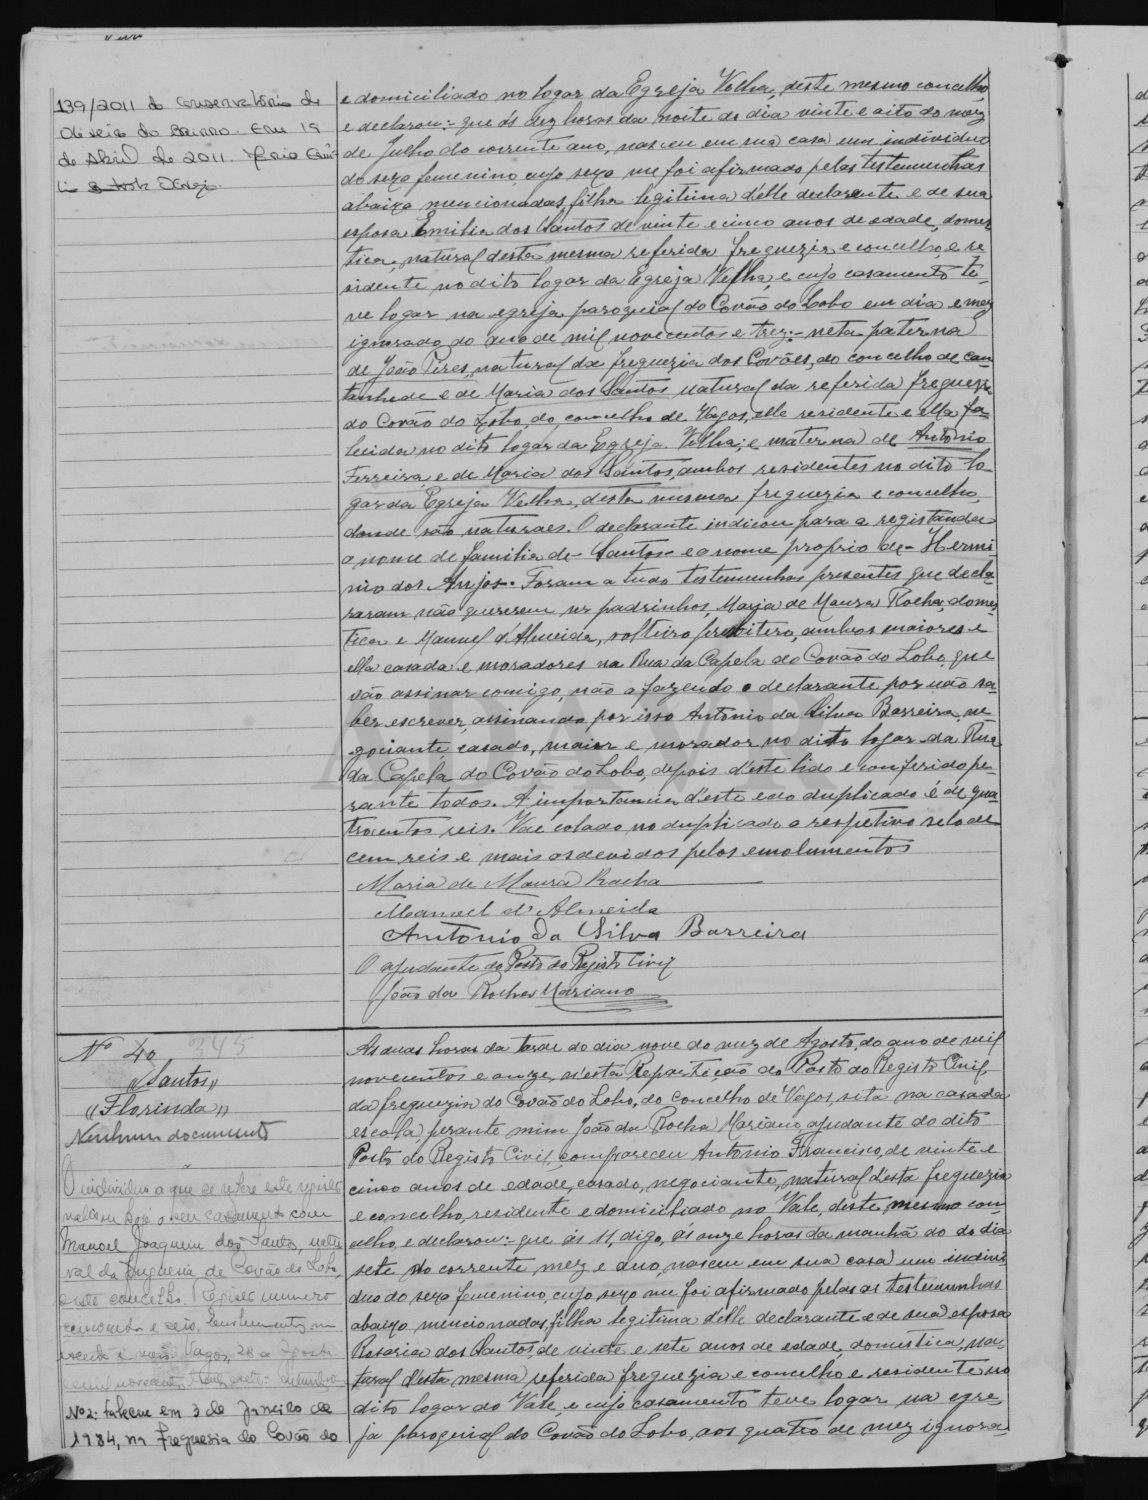 139/2011 da Conservatória de
de Abril de 2011.
e domiciliado no logar da Egreja Velha, deste mesmo concelho,
e declarou:- que ás dez horas da noite do dia vinte e oito do mez
de Julho do corrente ano, nasceu em sua casa um individuo
do sexo femenino, cujo sexo me foi afirmado pelas testemunhas
abaixo mencionadas, filha legitima d'elle declarante e de sua
esposa Emilia dos Santos de vinte e cinco anos de edade, domes-
tica, natural desta mesma referida freguezia e concelho, e re-
sidente no dito logar da Egreja Velha, e cujo casamento te-
ve logar na egreja paroquial do Covão do Lobo em dia e mez
ignorado do ano de mil novecentos e trez:- neta paterna
de João Pires, natural da freguezia dos Covões, do concelho de Can-
tanhede e de Maria dos Santos natural da referida freguezia
do Covão do Lobo, do concelho de Vagos, elle residente e ella fa-
lecida no dito logar da Egreja Velha; e materna de Antonio
Ferreira e de Maria dos Santos, ambos residentes no dito lo-
gar da Egreja Velha, desta mesma freguezia e concelho,
donde são naturaes. O declarante indicou para a registanda
o nome de familia de- Santos- e o nome proprio de- Hermi-
nio dos Anjos. Foram a tudo testemunhas presentes que decla-
raram não quererem ser padrinhos, Maria de Moura Rocha, domes-
tica e Manuel d'Almeida, solteiro, presbitero, ambos maiores e
ella casada e moradores na Rua da Capela do Covão do Lobo, que
vão assinar comigo, não o fazendo o declarante por não sa-
ber escrever, assinando por isso Antonio da Silva Barreira, ne-
gociante casado, maior e morador no dito logar da Rua
da Capela do Covão do Lobo, depois d'este lido e conferido pe-
rante todos. A importancia d'este e do duplicado é de qua-
trocentos reis. Vae colado no duplicado o respetivo selo de
cem reis e mais os devidos pelos emolumentos
Maria de Moura Rocha
Manuel d'Almeida
Antonio da Silva Barreira
O ajudante do Posto do Registo Civil
João da Rocha Mariano
Nº 40 345
"Santos"
"Florinda"
Nenhum documento
O individuo a que se refere este registo
realizou hoje o seu casamento com
Manoel Joaquim dos Santos, natu-
ral da freguesia de Covão do Lobo,
deste concelho. Registo numero
cincoenta e seis.
Vagos, 28 de Agosto
Nº 2: Faleceu em 3 de Janeiro de
1984, na freguesia do Covão do
As duas horas da tarde do dia nove do mez de Agosto, do ano de mil
novecentos e onze, n'esta Repartição do Posto do Registo Civil,
da freguezia do Covão do Lobo, do concelho de Vagos, sita na casa da
escola, perante mim João da Rocha Mariano, ajudante do dito
Posto do Registo Civil, compareceu Antonio Francisco, de vinte e
cinco anos de edade, casado, negociante, natural d'esta freguezia
e concelho, residente e domiciliado no Vale, deste mesmo con-
celho, e declarou:- que ás 11, digo, ás onze horas da manhã do dia
sete do corrente mez e ano, nasceu em sua casa um indivi-
duo do sexo femenino, cujo sexo me foi afirmado pelas as testemunhas
abaixo mencionadas, filha legitima d'elle declarante e de sua esposa
Rosaria dos Santos, de vinte e sete anos de edade, domestica, na-
tural d'esta mesma referida freguezia e concelho e residente no
dito logar do Vale, e cujo casamento teve logar na egre-
ja paroquial do Covão do Lobo, aos quatro de mez ignora-